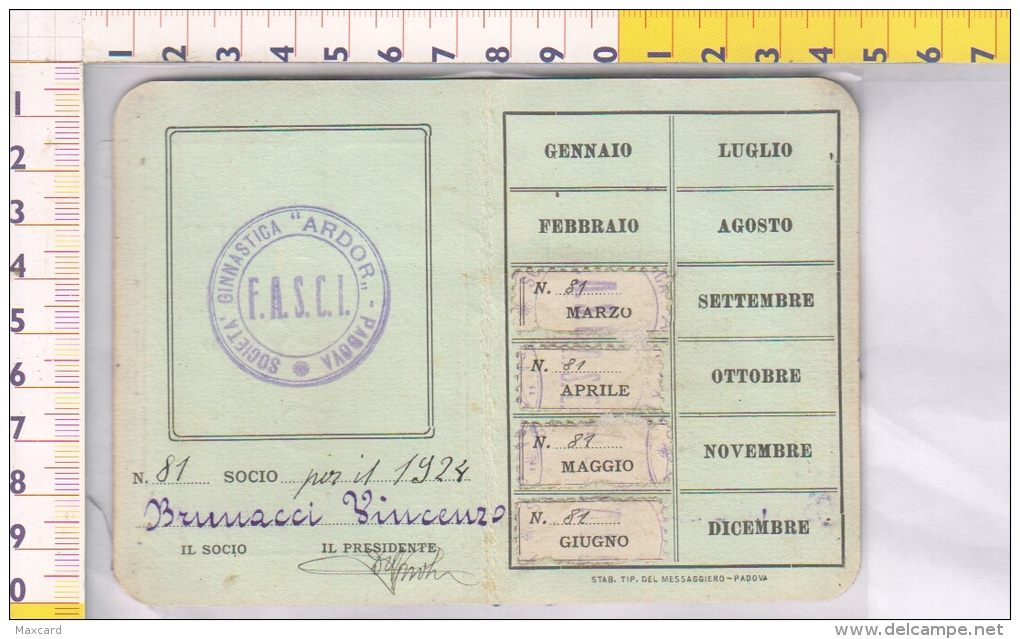 1 2 3 4 5 6 7 8 9 0 1 2 3 4 5 6 7
1
2
3
4
5
6
7
8
9
0
SOCIETA' GINNASTICA "ARDOR" - PADOVA
F.A.S.C.I.
N. 81 SOCIO per il 1924
Brunacci Vincenzo
IL SOCIO IL PRESIDENTE
GENNAIO LUGLIO
FEBBRAIO AGOSTO
N. 81
MARZO SETTEMBRE
N. 81
APRILE OTTOBRE
N. 81
MAGGIO NOVEMBRE
N. 81
GIUGNO DICEMBRE
STAB. TIP. DEL MESSAGGERO - PADOVA
Maxcard
delcampe.net